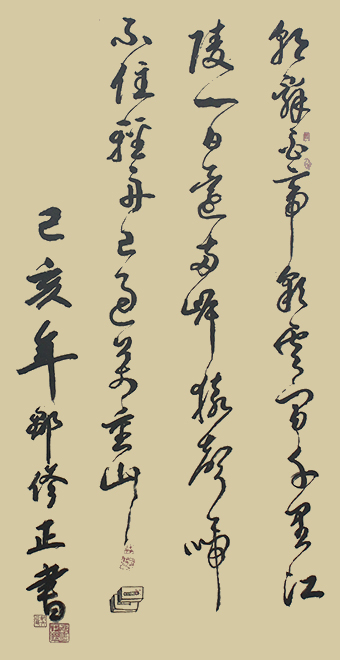 朝辭白帝彩雲間千里江
陵一日還兩岸猿聲啼
不住輕舟已過萬重山
己亥年修正書